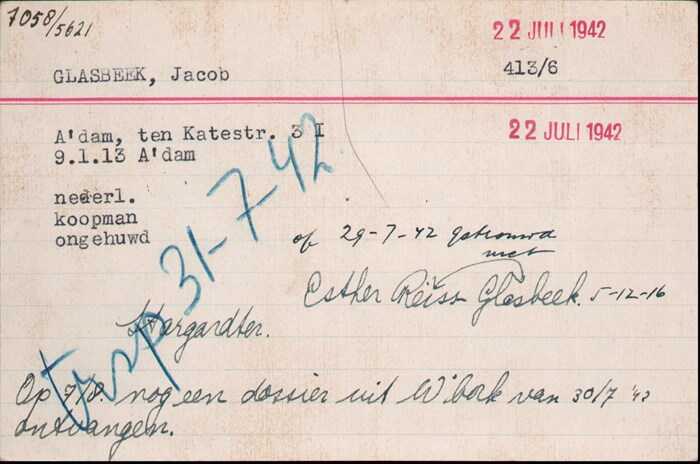 7058/5621
22 JULI 1942
GLASBEEK, Jacob
413/6
A'dam, ten Katestr. 3 I
22 JULI 1942
9.1.13 A'dam
nederl.
koopman
ongehuwd
op 29-7-42 getrouwd
met
Esther Reiss Glasbeek. 5-12-16
trsp 31-7-42
Op 7/8 nog een dossier uit W'bork van 30/7 '42
ontvangen.